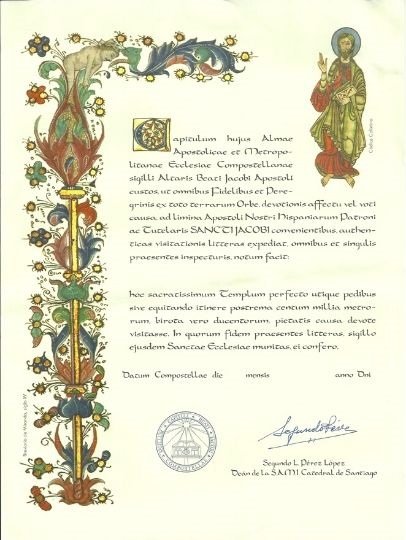 Capitulum hujus Almae
Apostolicae et Metropo-
litanae Ecclesiae Compostellanae
sigilli Altaris Beati Jacobi Apostoli
custos, ut omnibus Fidelibus et Pere-
grinis ex toto terrarum Orbe, devotionis affectu vel voti
causa, ad limina Apostoli Nostri Hispaniarum Patroni
ac Tutelaris SANCTI JACOBI convenientibus, authen-
ticas visitationis litteras expediat, omnibus et singulis
praesentes inspecturis, notum facit:
hoc sacratissimum Templum perfecto utique pedibus
sive equitando itinere postrema centum millia metro-
rum, birota vero ducentorum, pietatis causa devote
visitasse. In quorum fidem praesentes litteras, sigillo
ejusdem Sanctae Ecclesiae munitas, ei confero.
Datum Compostellae die mensis anno Dni
Segundo L. Pérez López
Deán de la S.A.M.I. Catedral de Santiago
Codex Calixtino
Breviario de Miranda, siglo XV